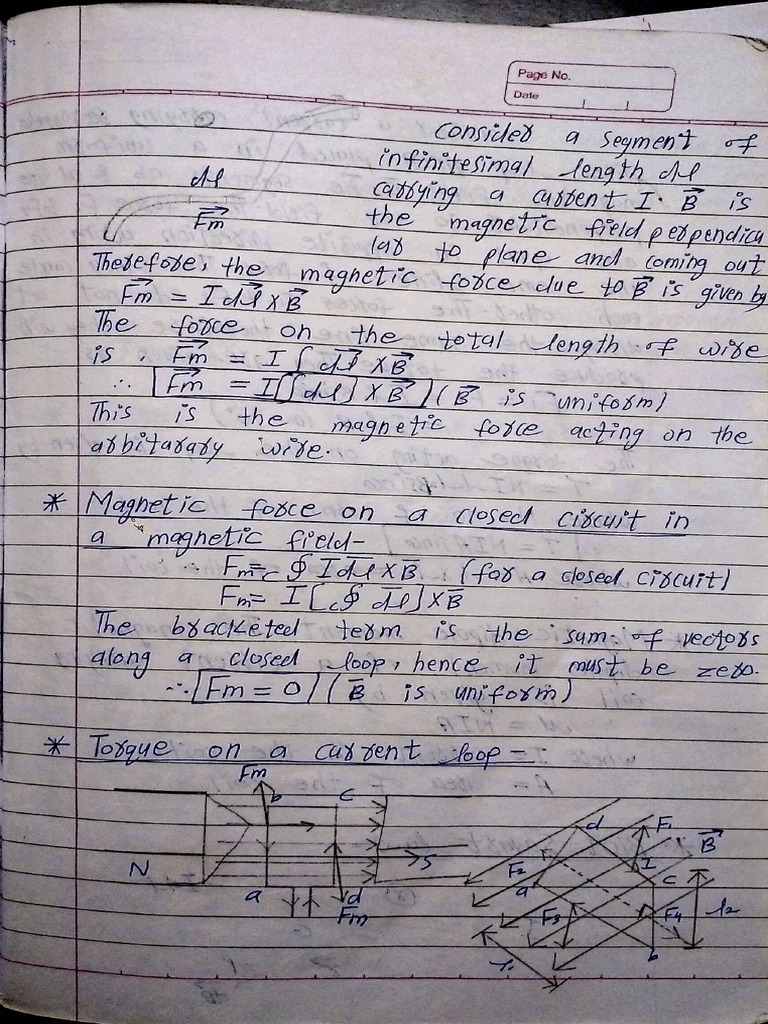 Page No.
Date
consider a segment of
infinitesimal length dl
carrying a current I. B⃗ is
the magnetic field perpendicu
lar to plane and coming out
dl
F⃗m
Therefore, the magnetic force due to B⃗ is given by
F⃗m = I dl⃗ × B⃗
The force on the total length of wire
is F⃗m = I ∫ dl⃗ × B⃗
∴ [F⃗m = I[∫dl] × B⃗] (B⃗ is uniform)
This is the magnetic force acting on the
arbitarary wire.
* Magnetic force on a closed circuit in
a magnetic field-
Fm = c∮ I dl̄ × B̄ (for a closed circuit)
Fm = I [c∮ dl̄] × B̄
The bracketed term is the sum of vectors
along a closed loop, hence it must be zero.
∴ [Fm = 0] (B̄ is uniform)
* Torque on a current loop =
Fm
b c
N S
a d
Fm
d F₁ B⃗
F₂ I
a c
F₃ F₄ l₂
b
l₁